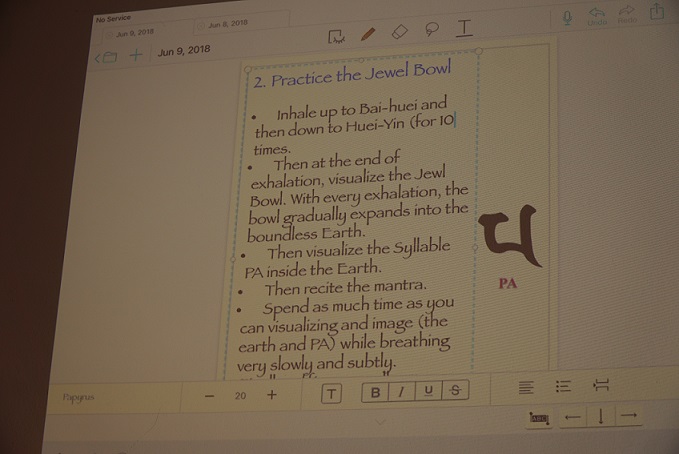 No Service
Jun 9, 2018
Jun 8, 2018
Jun 9, 2018
Undo
Redo
2. Practice the Jewel Bowl
• Inhale up to Bai-huei and
then down to Huei-Yin (for 10
times.
• Then at the end of
exhalation, visualize the Jewl
Bowl. With every exhalation, the
bowl gradually expands into the
boundless Earth.
• Then visualize the Syllable
PA inside the Earth.
• Then recite the mantra.
• Spend as much time as you
can visualizing and image (the
earth and PA) while breathing
very slowly and subtly.
PA
Papyrus
− 20 +
T
B I U S
ABC